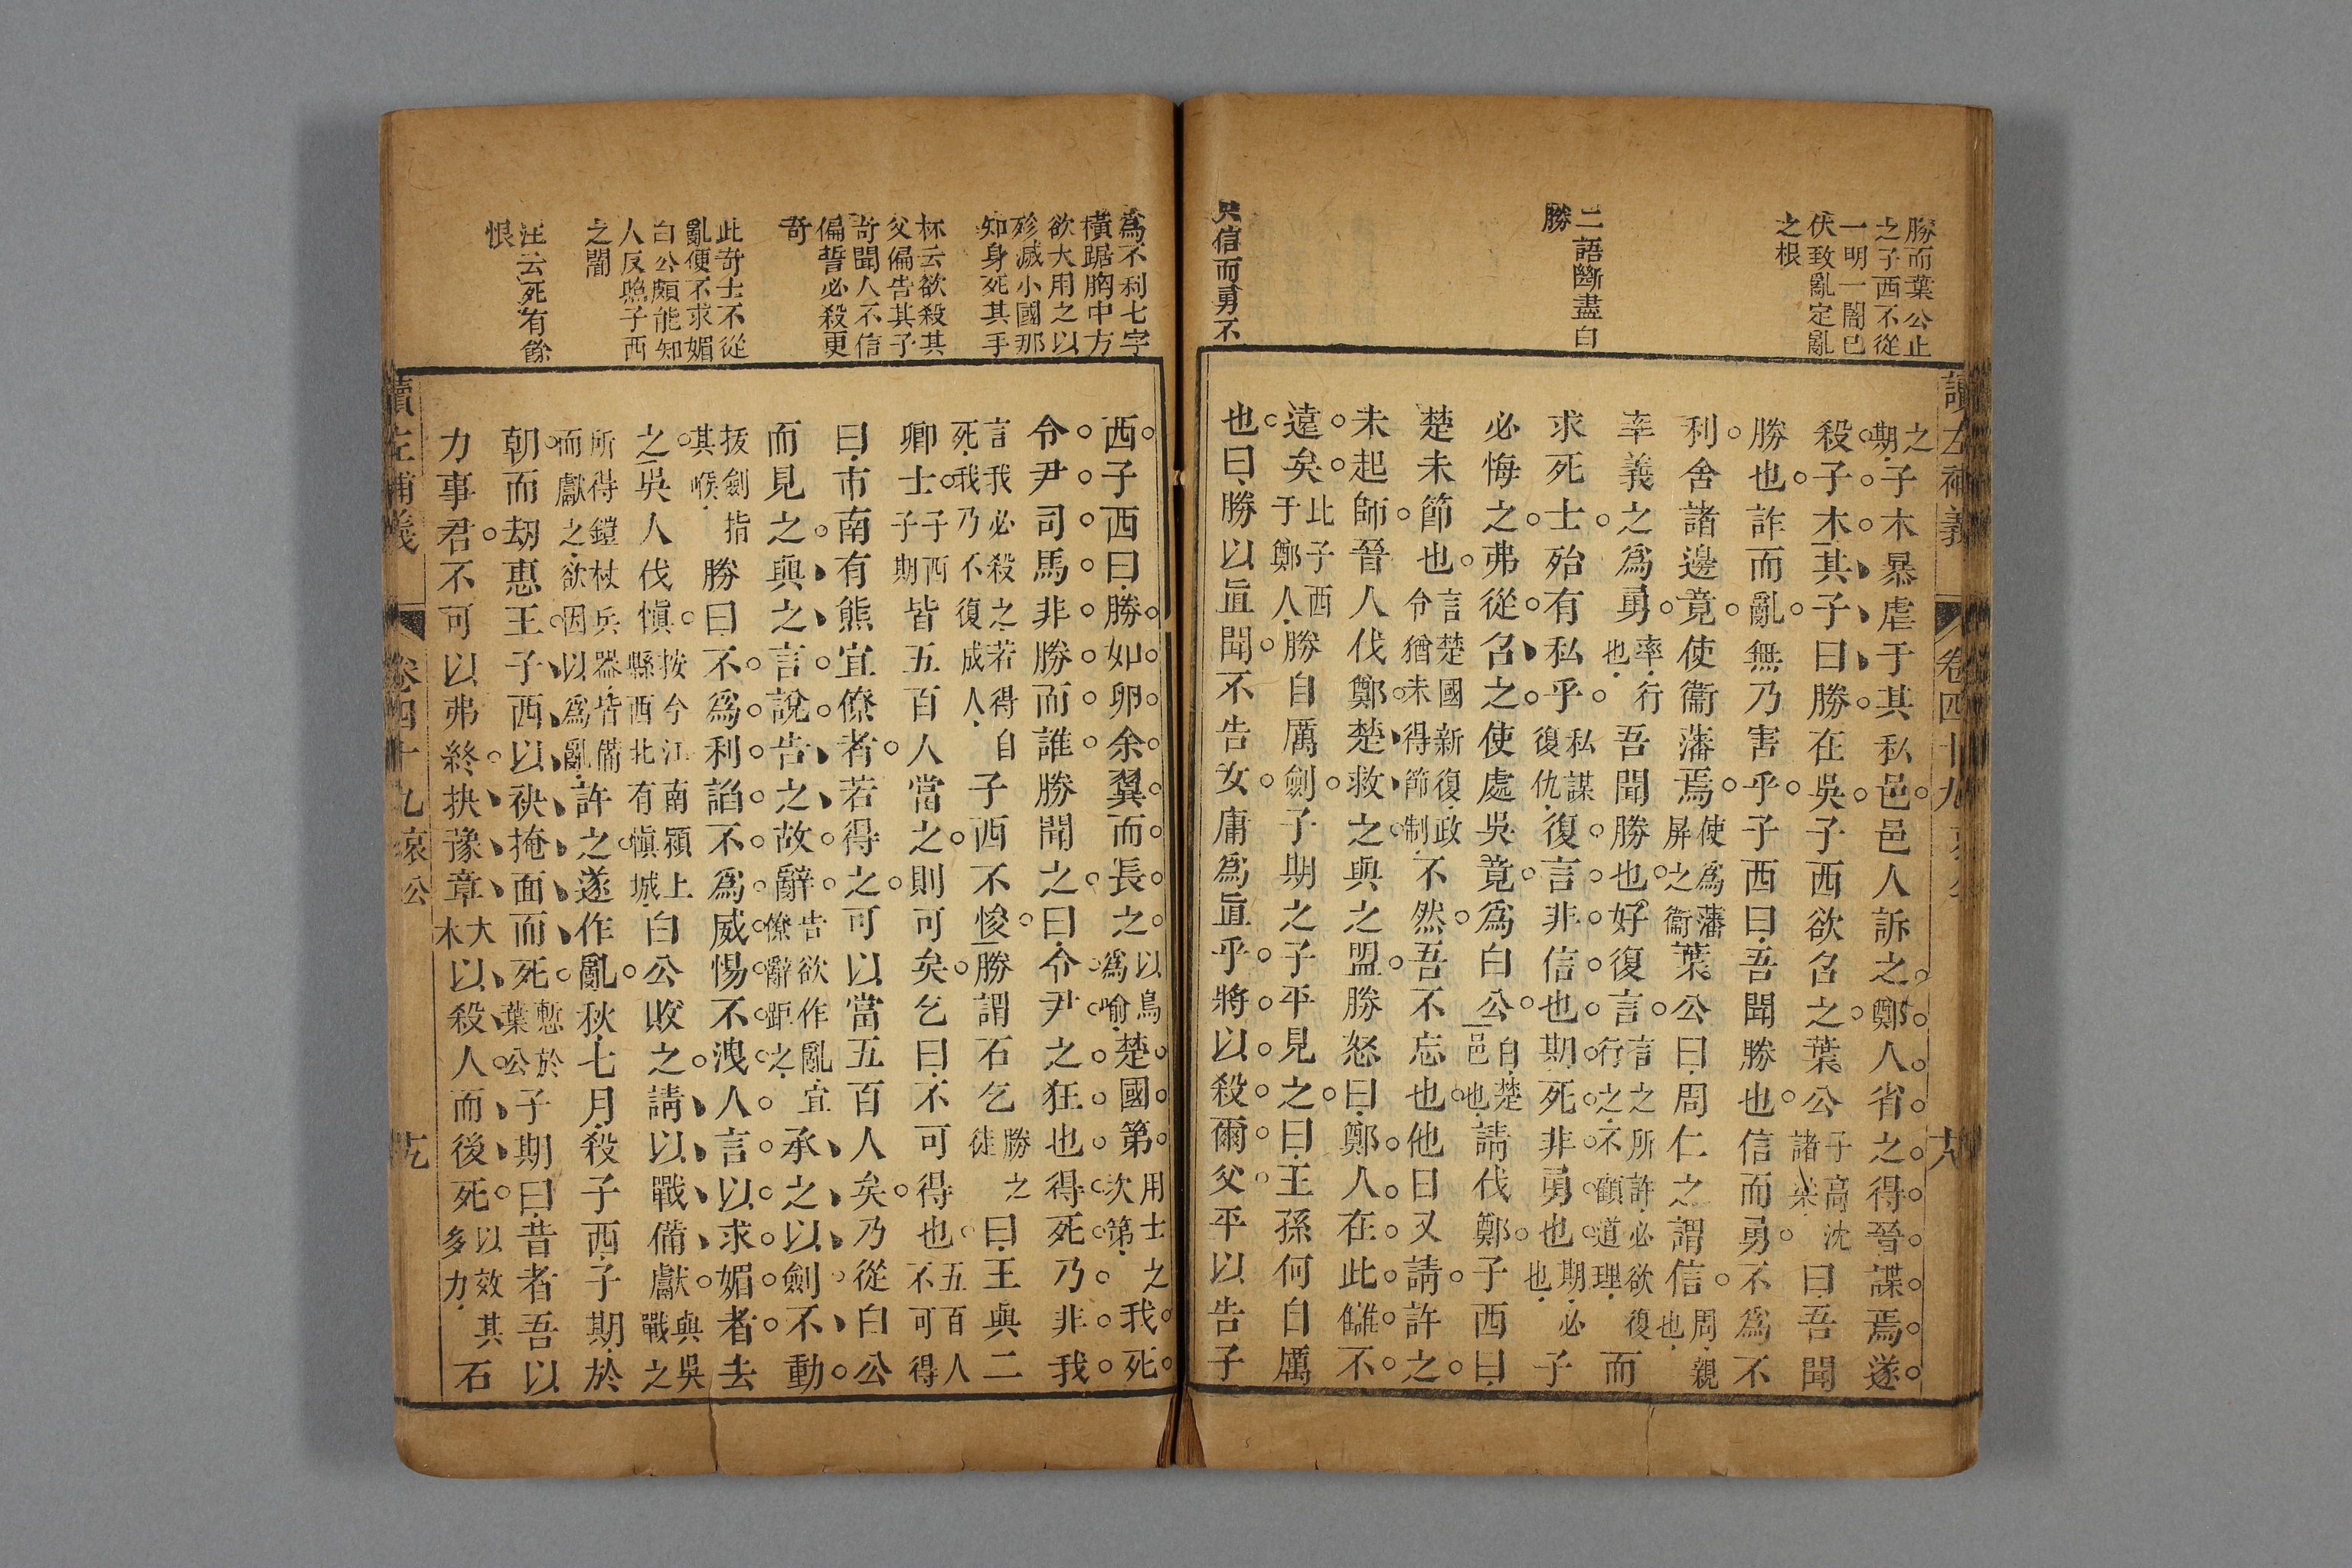 勝而葉公止
之子西不從
一明一闇已
伏致亂定亂
之根
二語斷盡白
勝
信而勇不
之期子木暴虐于其私邑邑人訴之鄭人省之得晉諜焉遂
殺子木其子曰勝在吳子西欲召之葉公子高沈諸梁曰吾聞
勝也詐而亂無乃害乎子西曰吾聞勝也信而勇不爲不
利舍諸邊竟使衞藩焉使爲藩屏之衞葉公曰周仁之謂信周親也
率義之爲勇率行也吾聞勝也好復言言之所許必欲復行之不顧道理而
求死士殆有私乎私謀復仇復言非信也期死非勇也期必也子
必悔之弗從召之使處吳竟爲白公白楚邑也請伐鄭子西曰
楚未節也言楚國新復政令猶未得節制不然吾不忘也他日又請許之
未起師晉人伐鄭楚救之與之盟勝怒曰鄭人在此讎不
遠矣此子西于鄭人勝自厲劍子期之子平見之曰王孫何自厲
也曰勝以直聞不告女庸爲直乎將以殺爾父平以告子
爲不利七字
橫踞胸中方
欲大用之以
殄滅小國那
知身死其手
杯云欲殺其
父偏告其子
奇聞人不信
偏誓必殺更
奇
此奇士不從
亂便不求媚
白公頗能知
人反照子西
之闇
汪云死有餘
恨
西子西曰勝如卵余翼而長之以鳥爲喻楚國第用士之次第我死
令尹司馬非勝而誰勝聞之曰令尹之狂也得死乃非我
言我必殺之若得自死我乃不復成人子西不悛勝謂石乞勝之徒曰王與二
卿士子西子期皆五百人當之則可矣乞曰不可得也五百人不可得
曰市南有熊宜僚者若得之可以當五百人矣乃從白公
而見之與之言說告之故辭告欲作亂宜僚辭距之承之以劍不動
拔劍指其喉勝曰不爲利諂不爲威惕不洩人言以求媚者去
之吳人伐愼按今江南潁上縣西北有愼城白公敗之請以戰備獻與吳戰之
所得鎧杖兵器皆備而獻之欲因以爲亂許之遂作亂秋七月殺子西子期於
朝而劫惠王子西以袂掩面而死慙於葉公子期曰昔者吾以
力事君不可以弗終抉豫章大木以殺人而後死以效其多力石
讀左補義
卷四十九哀公